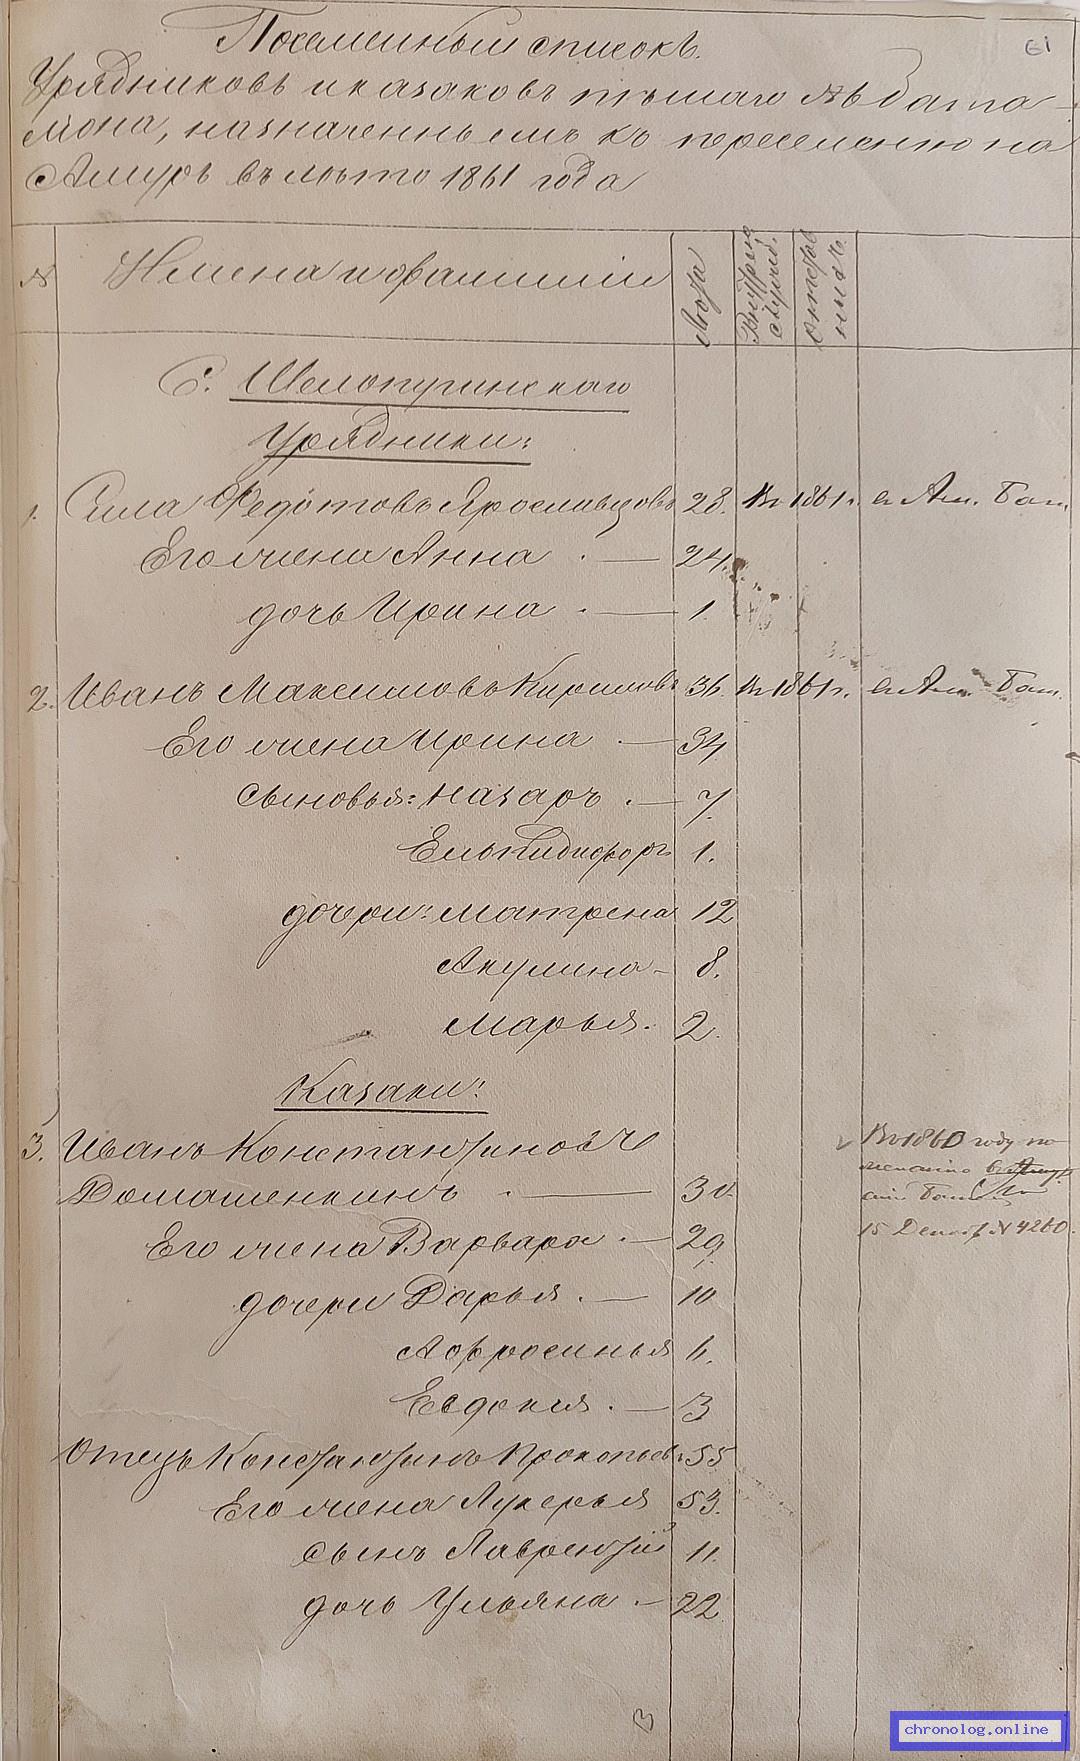 Посемейный списокъ.
61
Урядниковъ и казаковъ пѣшаго № бата-
лiона, назначеннымъ къ переселенiю на
Амуръ въ лѣто 1861 года
№ Имена и фамилiи Лѣта
С. Шелопугинскаго
Урядники:
1. Сила Федотовъ Ярославцовъ 28. въ 1861 г. въ Ам. Бат.
Его жена Анна . — 24.
дочь Ирина . — 1.
2. Иванъ Максимовъ Кириловъ 36. въ 1861 г. въ Ам. Бат.
Его жена Ирина . — 34.
сыновья: Назаръ . — 7.
Ельпидифоръ 1.
дочери: Матрена 12
Акулина - 8.
Марья. 2.
Казаки:
3. Иванъ Константиновъ
Домашенкинъ . — 30. В 1860 году
Его жена Варвара . — 29. 15 Декабр № 4260.
дочери Дарья . — 10
Афросинья 6.
Евдокiя . — 3
Отецъ Константинъ Прокопьевъ 55
Его жена Лукерья 53.
сынъ Лаврентiй 11.
дочь Ульяна . — 22
chronolog.online